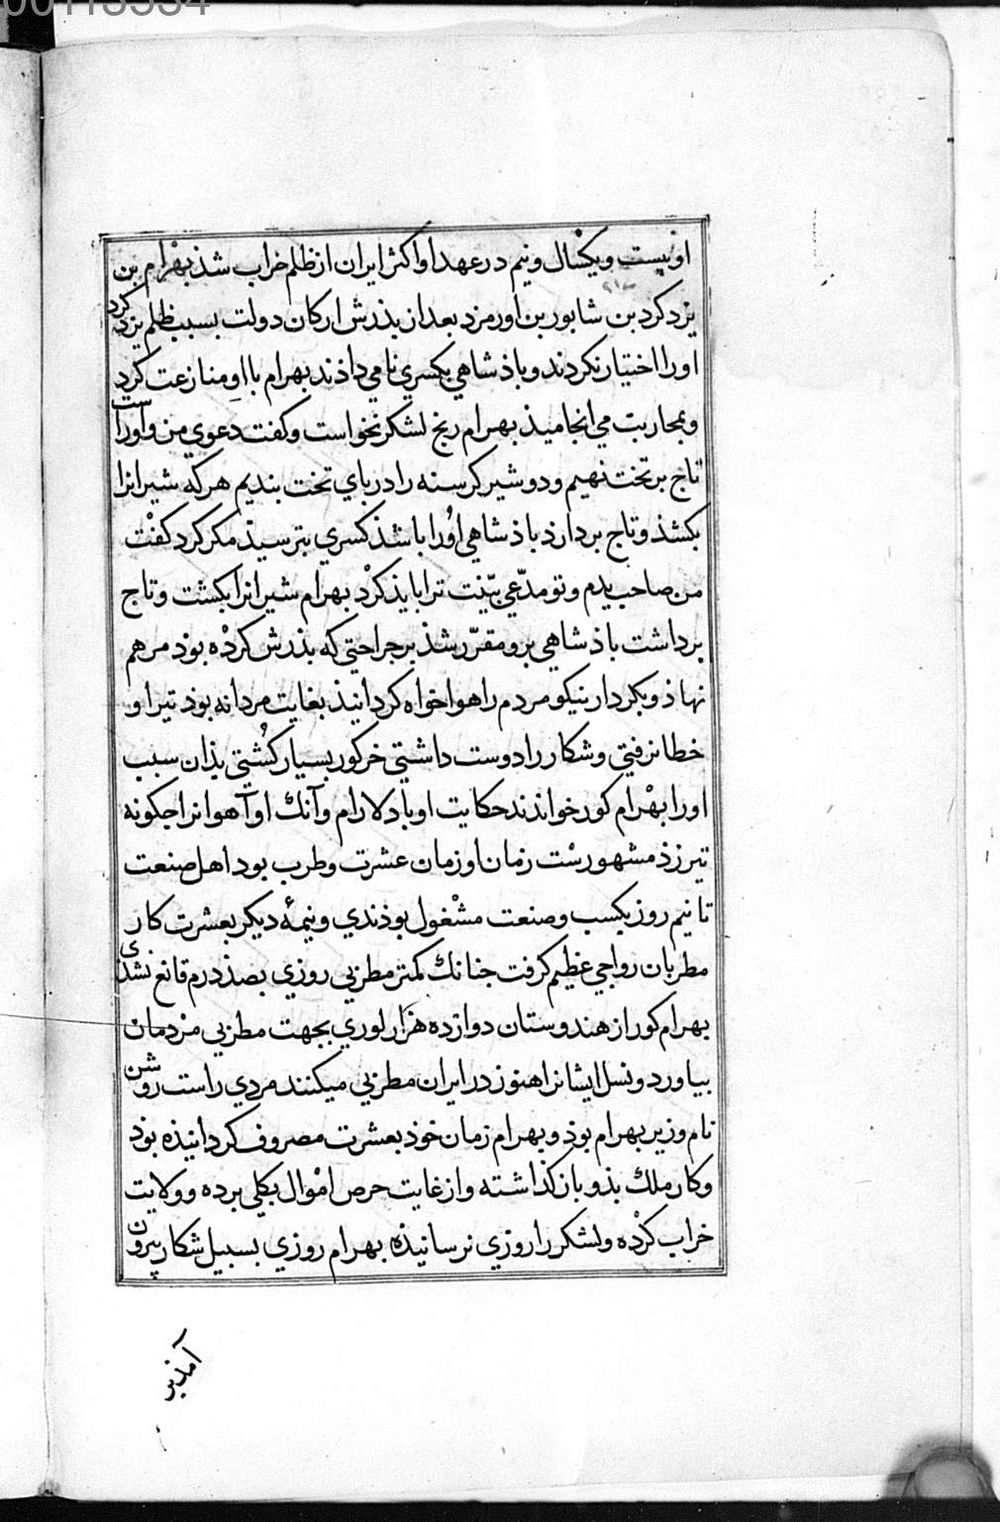 00113534
او بیست و یکسال و نیم در عهد او اکثر ایران از ظلم خراب شذ بهرام بن
یزدکرد بن شابور بن اورمزد بعد از بذرش ارکان دولت بسبب ظلم یزدکرد
او را اختیار نکردند و باذشاهی بکسری نامی داذند بهرام با او منازعت کرد
و بمحاربت می انجامیذ بهرام رنج لشکر نخواست و کفت دعوی من و اوراست
تاج بر تخت نهیم و دو شیر کرسنه را در بای تخت بندیم هر که شیرانرا
بکشذ و تاج بردارذ باذشاهی اورا باشذ کسری بترسیذ مکر کرد کفت
من صاحب یدم و تو مدّعی بیّنت ترا بایذ کرد بهرام شیرانرا بکشت و تاج
برداشت باذشاهی برو مقرّر شذ بر جراحتی که بذرش کرده بوذ مرهم
نهاذ و بکردار نیکو مردم را هواخواه کردانیذ بغایت مردانه بوذ تیر او
خطا نرفتی و شکار را دوست داشتی خرکور بسیار کُشتی بذان سبب
اورا بهرام کور خواندند حکایت او با دلارام و آنك او آهوانرا جکونه
تیر زذ مشهورست زمان او زمان عشرت و طرب بود اهل صنعت
تا نیم روز بکسب و صنعت مشغول بوذندی و نیمهٔ دیکر بعشرت کار
مطربان رواجی عظیم کرفت جنانك کمتر مطربی روزی بصد درم قانع نشدی
بهرام کور از هندوستان دوازده هزار لوری بجهت مطربی مردمان
بیاورد و نسل ایشانرا هنوز در ایران مطربی میکنند مردی راست روشن
نام وزیر بهرام بوذ و بهرام زمان خوذ بعشرت مصروف کردانیذه بوذ
و کار ملك بذو باز کذاشته و از غایت حرص اموال بکلی برده و ولایت
خراب کرده و لشکر را روزی نرسانیذه بهرام روزی بسبیل شکار بیرون
آمذ بر